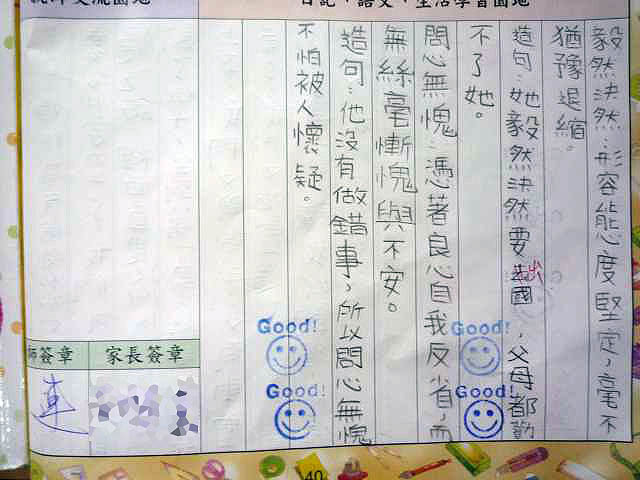 日記‧語文‧生活學習園地
毅然決然：形容態度堅定，毫不
猶豫退縮。
造句：她毅然決然要出國，父母都勸
不了她。
問心無愧：憑著良心自我反省，而
無絲毫慚愧與不安。
造句：他沒有做錯事，所以問心無愧
不怕被人懷疑。
Good!
Good!
Good!
Good!
師簽章
家長簽章
連
40